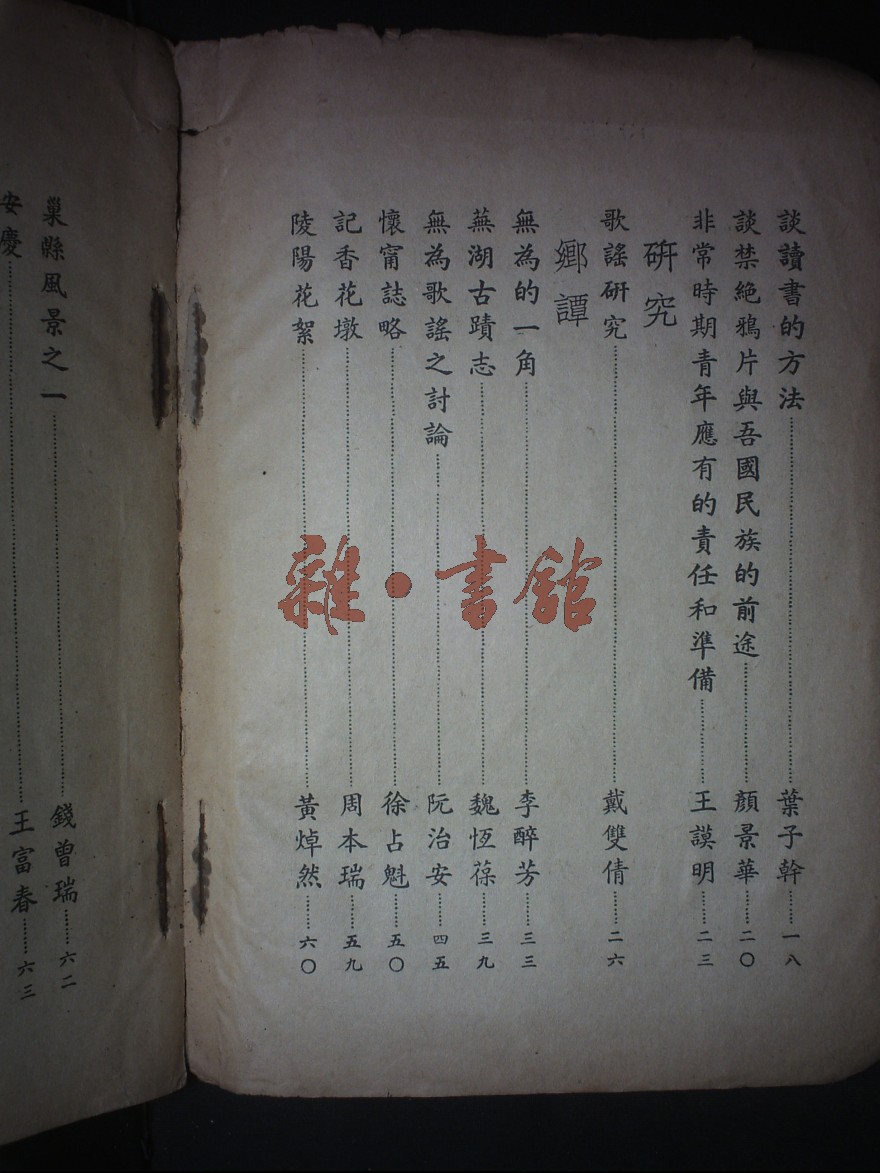 談讀書的方法……葉子幹……一八
談禁絕鴉片與吾國民族的前途……顏景華……二〇
非常時期青年應有的責任和準備……王謨明……二三
研究
歌謠研究……戴雙倩……二六
鄉譚
無為的一角……李醉芳……三三
蕪湖古蹟志……魏恆葆……三九
無為歌謠之討論……阮治安……四五
懷甯誌略……徐占魁……五〇
記香花墩……周本瑞……五九
陵陽花絮……黃焯然……六〇
巢縣風景之一……錢曾瑞……六二
安慶……王富春……六三
雜·書館